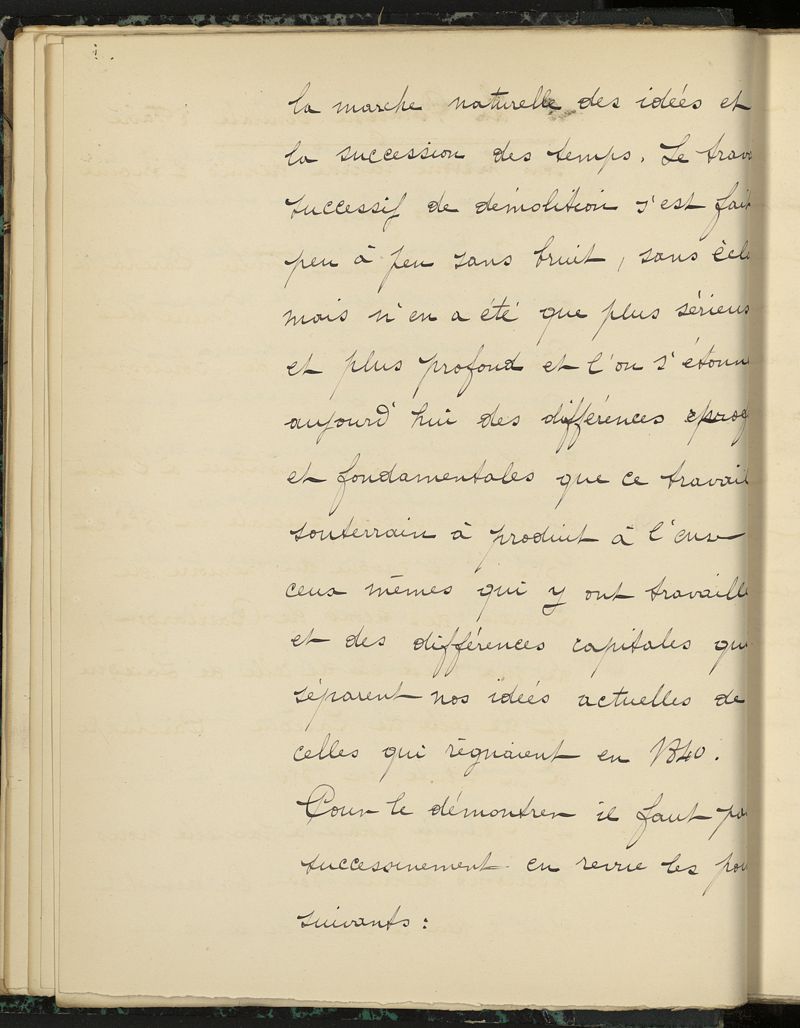 la marche naturelle des idées et
la succession des temps. Le trava
successif de démolition s'est fait
peu à peu sans bruit, sans écla
mais n'en a été que plus sérieus
et plus profond et l'on s'étonne
aujourd'hui des différences prof
et fondamentales que ce travail
souterrain à produit à l'
ceux mêmes qui y ont travaillé
et des différences capitales qui
séparent nos idées actuelles de
celles qui régnaient en 1840.
Pour le démontrer il faut pa
successivement en revue les poi
suivants :